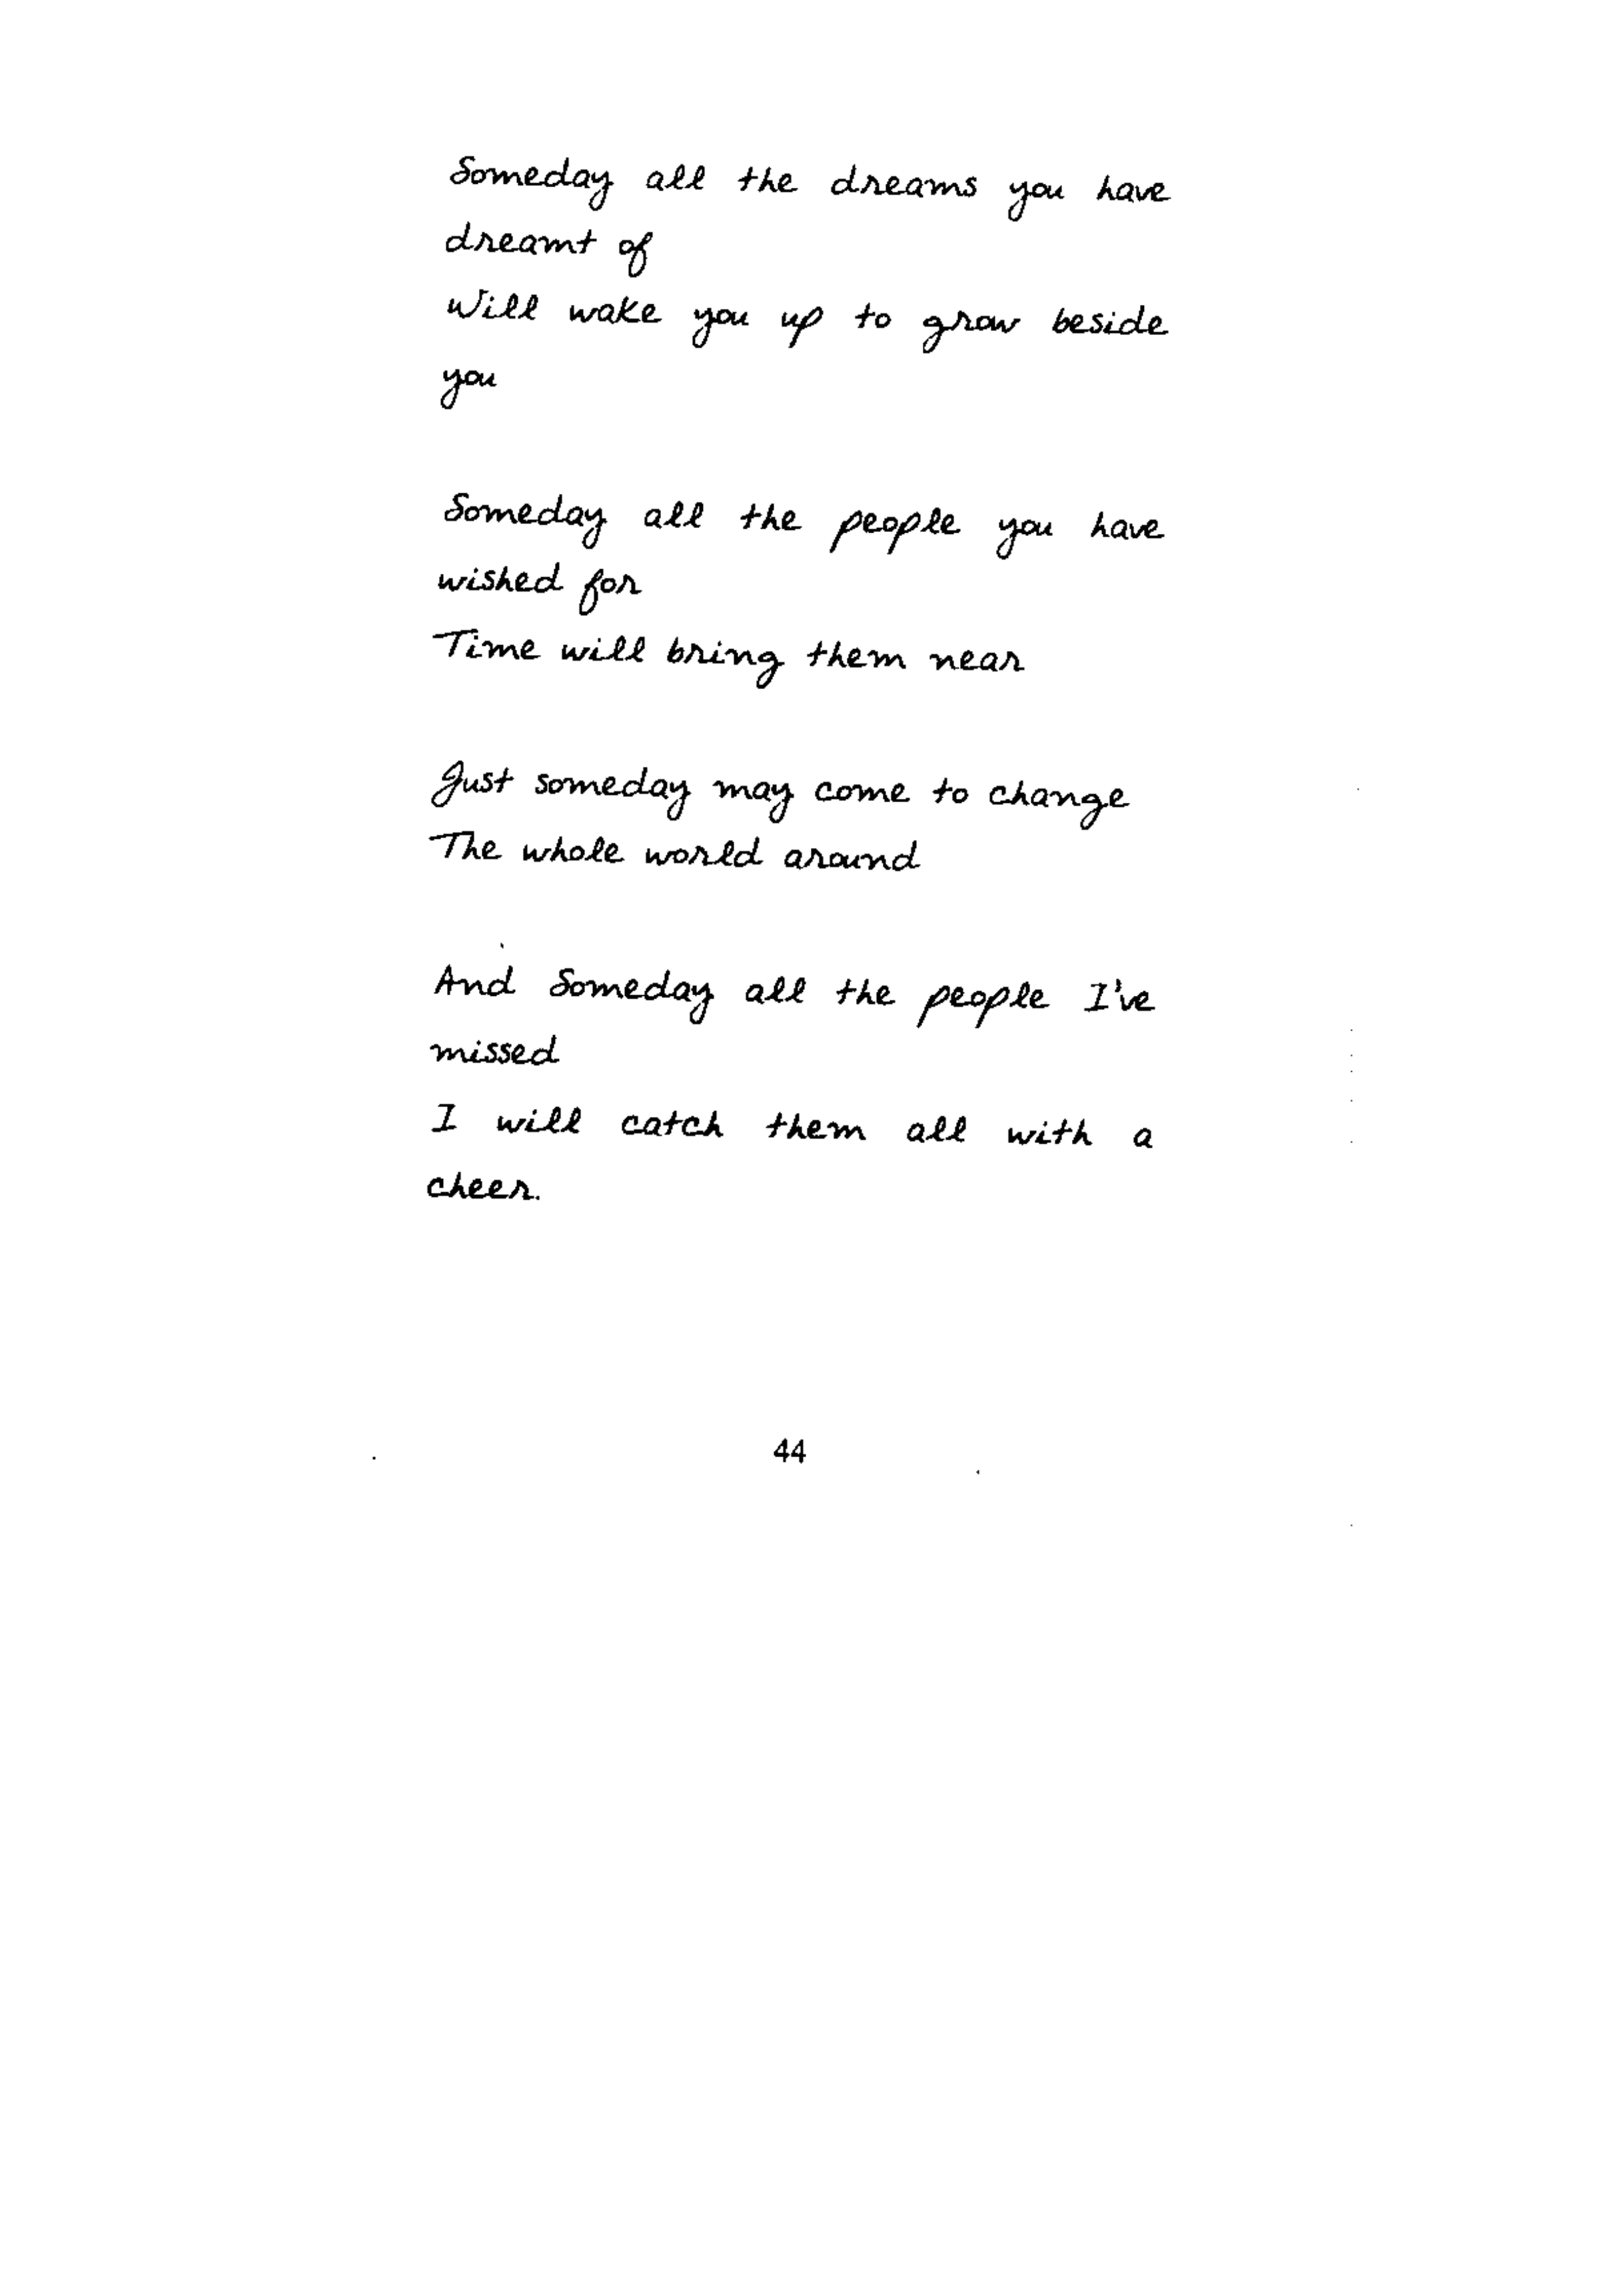 Someday all the dreams you have
dreamt of
Will wake you up to grow beside
you
Someday all the people you have
wished for
Time will bring them near
Just someday may come to change
The whole world around
And Someday all the people I've
missed
I will catch them all with a
cheer.
44